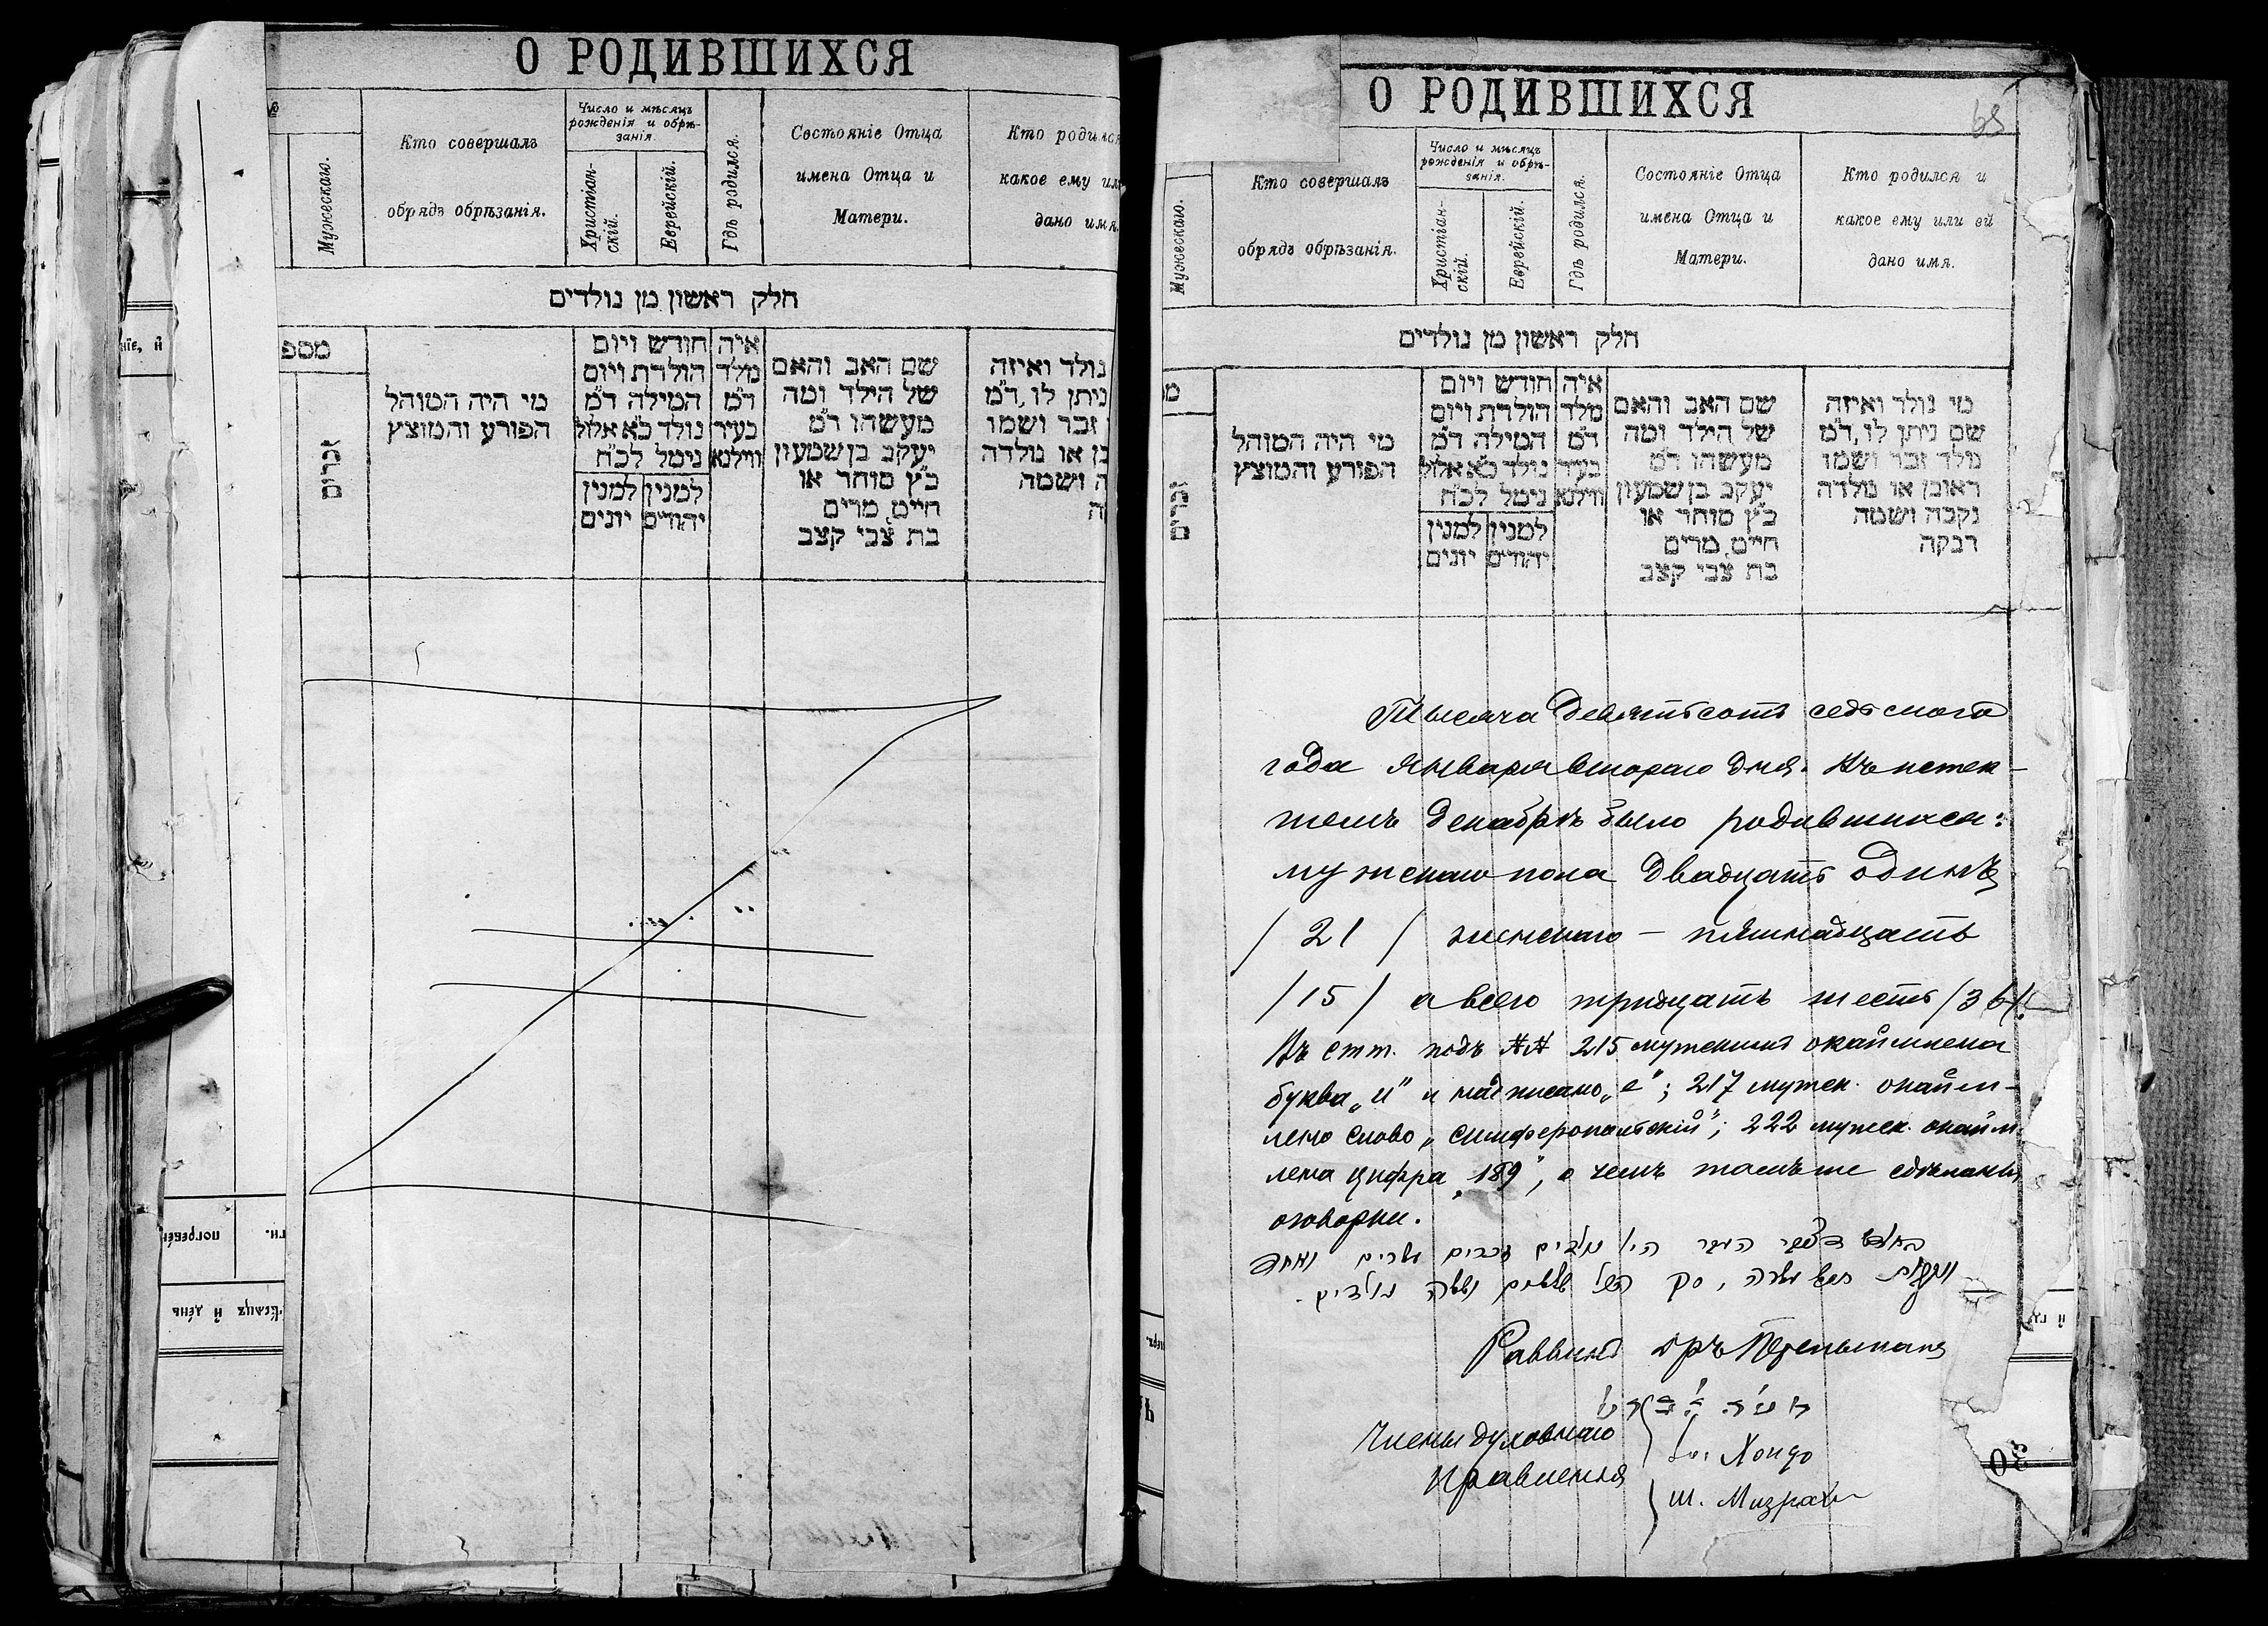 О РОДИВШИХСЯ
№
Мужескаго.
Кто совершалъ
обрядъ обрѣзанія.
Число и мѣсяцъ
рожденія и обрѣ-
занія.
Христіан-
скій.
Еврейскій.
Гдѣ родился.
Состояніе Отца
имена Отца и
Матери.
Кто родился
какое ему или
дано имя.
חלק ראשון מן נולדים
מספ
זכרים
מי היה המוהל
הפורע והמוצץ
חודש ויום
הולדת ויום
המילה ד״מ
נולד כ״א אלול
נימל לכ״ח
למנין
יהודים
למנין
יונים
איה
מלד
ד״מ
בעיר
ווילנא
שם האב והאם
של הילד ומה
מעשהו ד״מ
יעקב בן שמעון
כ״ץ סוחר או
חייט, מרים
בת צבי קצב
נולד ואיזה
ניתן לו, ד״מ
זכר ושמו
בן או נולדה
ה ושמה
ה
погребе
ѣсяцъ и день
О РОДИВШИХСЯ
68
Мужескаго.
Кто совершалъ
обрядъ обрѣзанія.
Число и мѣсяцъ
рожденія и обрѣ-
занія.
Христіан-
скій.
Еврейскій.
Гдѣ родился.
Состояніе Отца
имена Отца и
Матери.
Кто родился и
какое ему или ей
дано имя.
חלק ראשון מן נולדים
מ
זכרים
מי היה המוהל
הפורע והמוצץ
חודש ויום
הולדת ויום
המילה ד״מ
נולד כ״א אלול
נימל לכ״ח
למנין
יהודים
למנין
יונים
איה
מלד
ד״מ
בעיר
ווילנא
שם האב והאם
של הילד ומה
מעשהו ד״מ
יעקב בן שמעון
כ״ץ סוחר או
חייט, מרים
בת צבי קצב
מי נולד ואיזה
שם ניתן לו, ד״מ
נולד זכר ושמו
ראובן או נולדה
נקבה ושמה
רבקה
Тысяча девятьсотъ седьмого
года января втораго дня. Въ истек-
шемъ декабрѣ было родившихся:
мужескаго пола двадцать одинъ
/21/ женскаго — пятнадцать
/15/ а всего тридцать шесть /36/.
Въ стт. подъ №№ 215 мужескихъ окаймлена
буква „и“ и надписано „е“; 217 мужск. окайм-
лено слово „симферопольскій“; 222 мужск. окайм-
лена цифра „189“, о чемъ тамъ же сдѣланы
оговорки.
היו נולדים זכרים עשרים ואחד
עשרה, סך הכל שלשים וששה נולדים.
Раввинъ
Члены духовнаго
Правленія
Хондо
Ш. Мизрахи
30